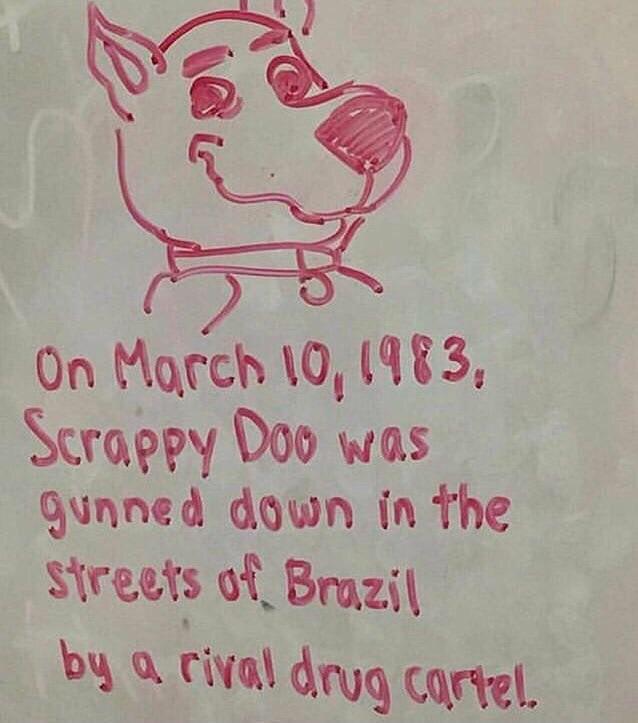 On March 10, 1983,
Scrappy Doo was
gunned down in the
streets of Brazil
by a rival drug cartel.